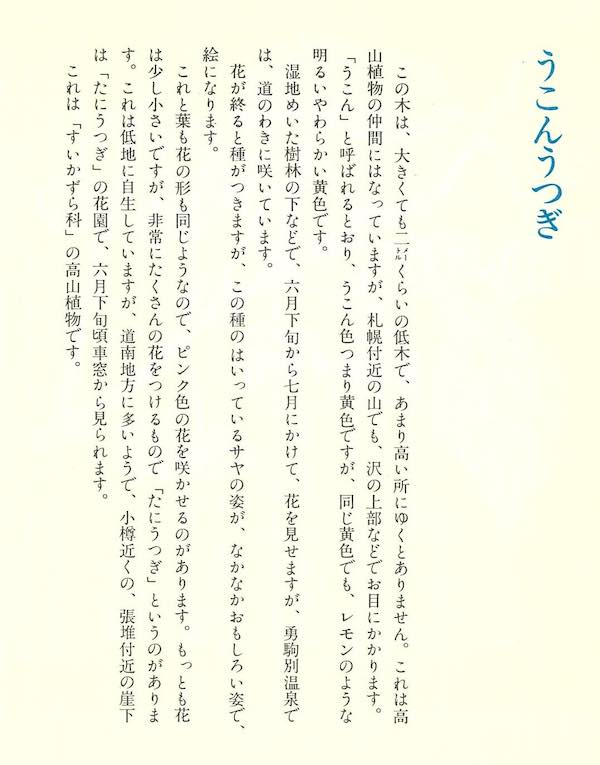 うこんうつぎ
この木は、大きくても二㍍くらいの低木で、あまり高い所にゆくとありません。これは高
山植物の仲間にはなっていますが、札幌付近の山でも、沢の上部などでお目にかかります。
「うこん」と呼ばれるとおり、うこん色つまり黄色ですが、同じ黄色でも、レモンのような
明るいやわらかい黄色です。
湿地めいた樹林の下などで、六月下旬から七月にかけて、花を見せますが、勇駒別温泉で
は、道のわきに咲いています。
花が終ると種がつきますが、この種のはいっているサヤの姿が、なかなかおもしろい姿で、
絵になります。
これと葉も花の形も同じようなので、ピンク色の花を咲かせるのがあります。もっとも花
は少し小さいですが、非常にたくさんの花をつけるもので「たにうつぎ」というのがありま
す。これは低地に自生していますが、道南地方に多いようで、小樽近くの、張堆付近の崖下
は「たにうつぎ」の花園で、六月下旬頃車窓から見られます。
これは「すいかずら科」の高山植物です。